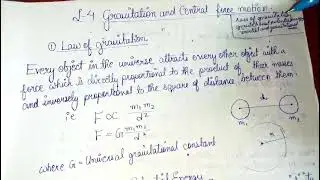 L-4 Gravitation and Central force motion.
① Law of gravitation
Every object in the universe attracts every other object with a
force which is directly proportional to the product of their masses
and inversely proportional to the square of distance between them
F ∝ m₁m₂/d²
F = G m₁m₂/d²
d
m₁ m₂
where G = Universal gravitational constant
Energy